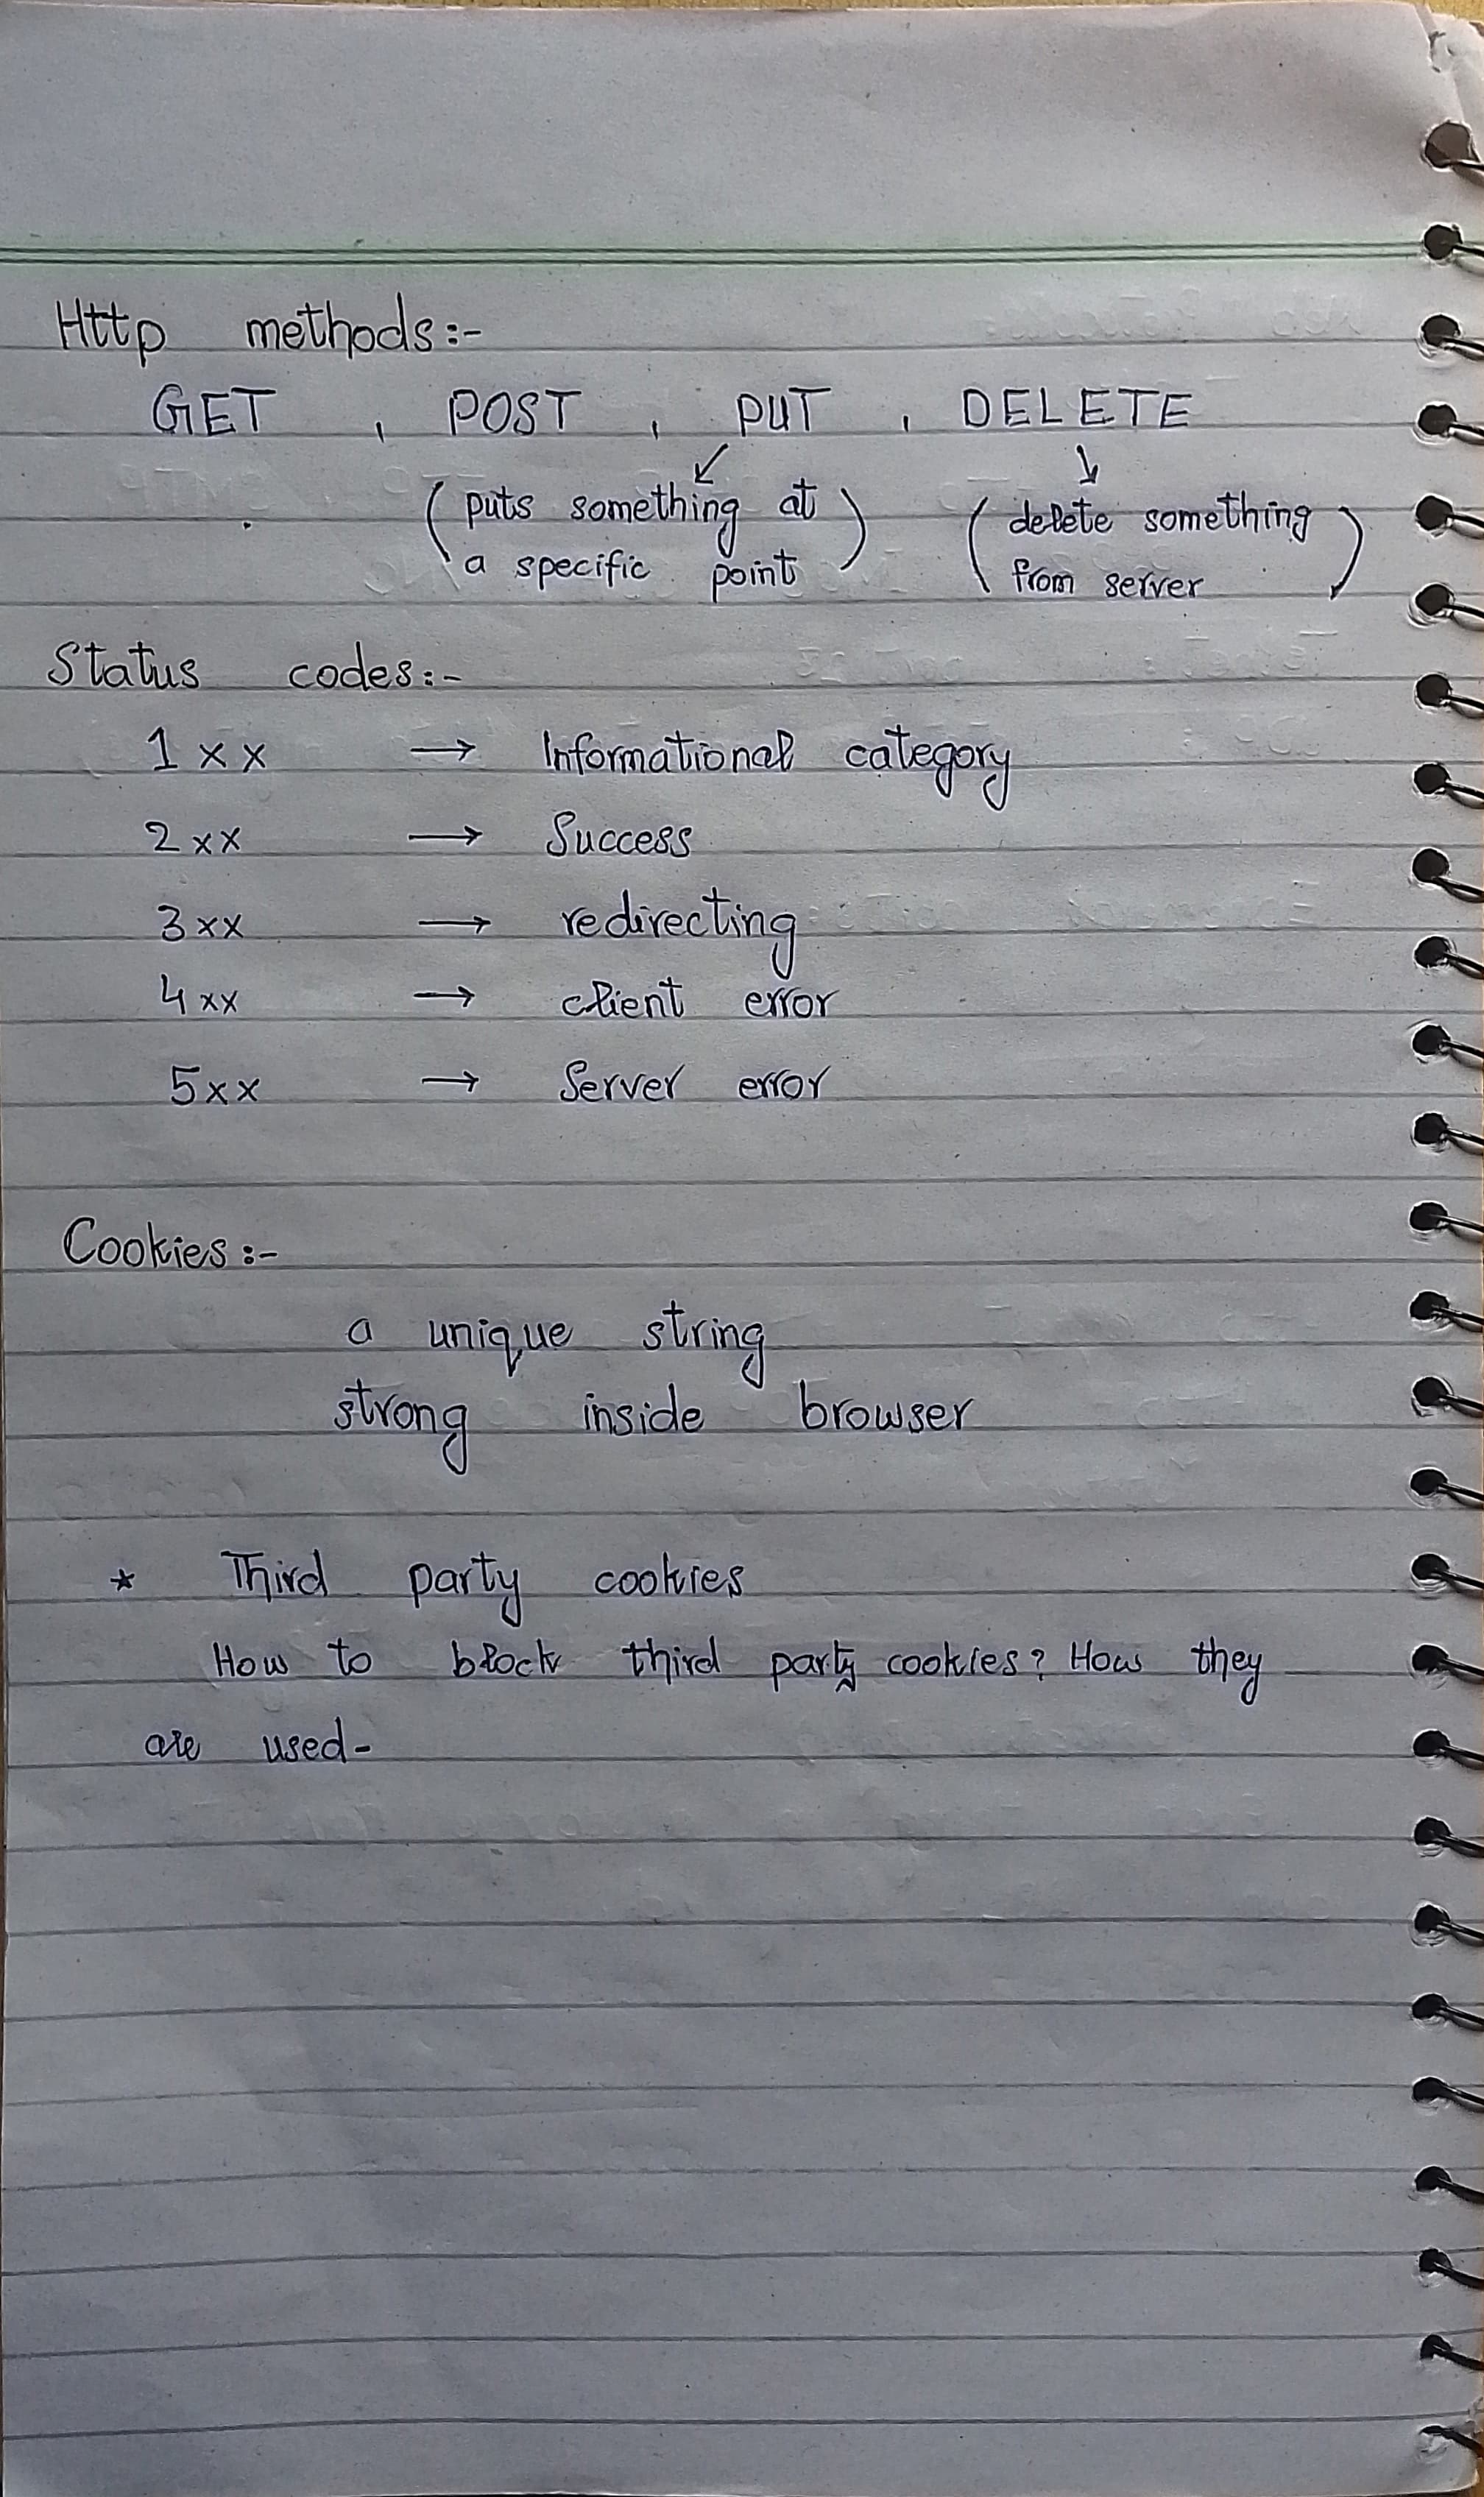 Http methods:-
GET , POST , PUT , DELETE
(puts something at a specific point) (delete something from server)
Status codes:-
1xx → Informational category
2xx → Success
3xx → redirecting
4xx → client error
5xx → Server error
Cookies:-
a unique string
strong inside browser
* Third party cookies
How to block third party cookies? How they
are used-